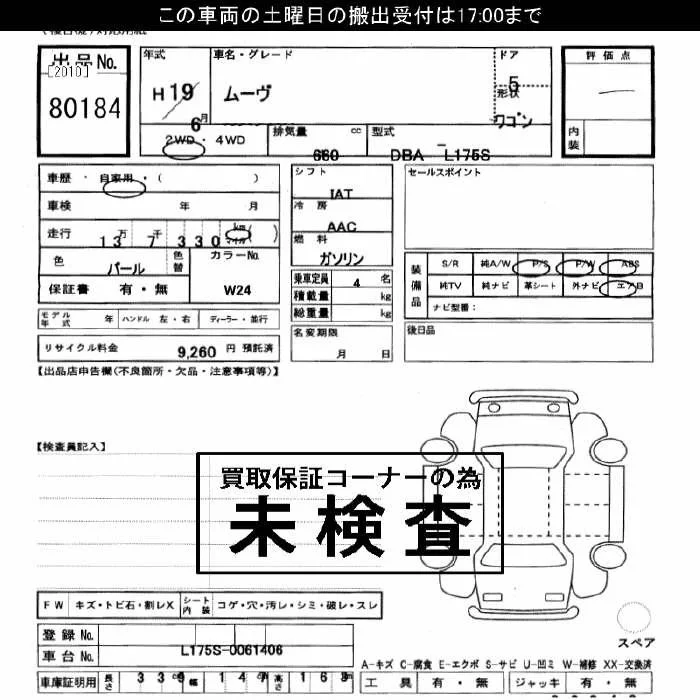 この車両の土曜日の搬出受付は17:00まで
出品No.
[2010]
80184
年式
H 19
6月
車名・グレード
ムーヴ
ドア
5
形状
ワゴン
評価点
内装
2WD・4WD
排気量 cc
660
型式
DBA － L175S
車歴・自家用・( )
車検 年 月
走行 13万 7千 330 km マイル ( )
色 パール 色替
カラーNo.
W24
保証書 有・無
シフト
IAT
冷房
AAC
燃料
ガソリン
乗車定員 4 名
積載量 kg
総重量 kg
セールスポイント
装備品
S/R 純A/W P/S P/W ABS
純TV 純ナビ 革シート 外ナビ エアB
ナビ型番:
モデル年式 年 ハンドル 左・右 ディーラー・並行
リサイクル料金 9,260 円 預託済
名変期限
月 日
後日品
【出品店申告欄(不良箇所・欠品・注意事項等)】
【検査員記入】
買取保証コーナーの為
未検査
FW キズ・トビ石・割レX シート内装 コゲ・穴・汚レ・シミ・破レ・スレ
登録No.
車台No. L175S-0061406
スペア
A-キズ C-腐食 E-エクボ S-サビ U-凹ミ W-補修 XX-交換済
車庫証明用 長さ 339 幅 147 高さ 163
工具 有・無 ジャッキ 有・無